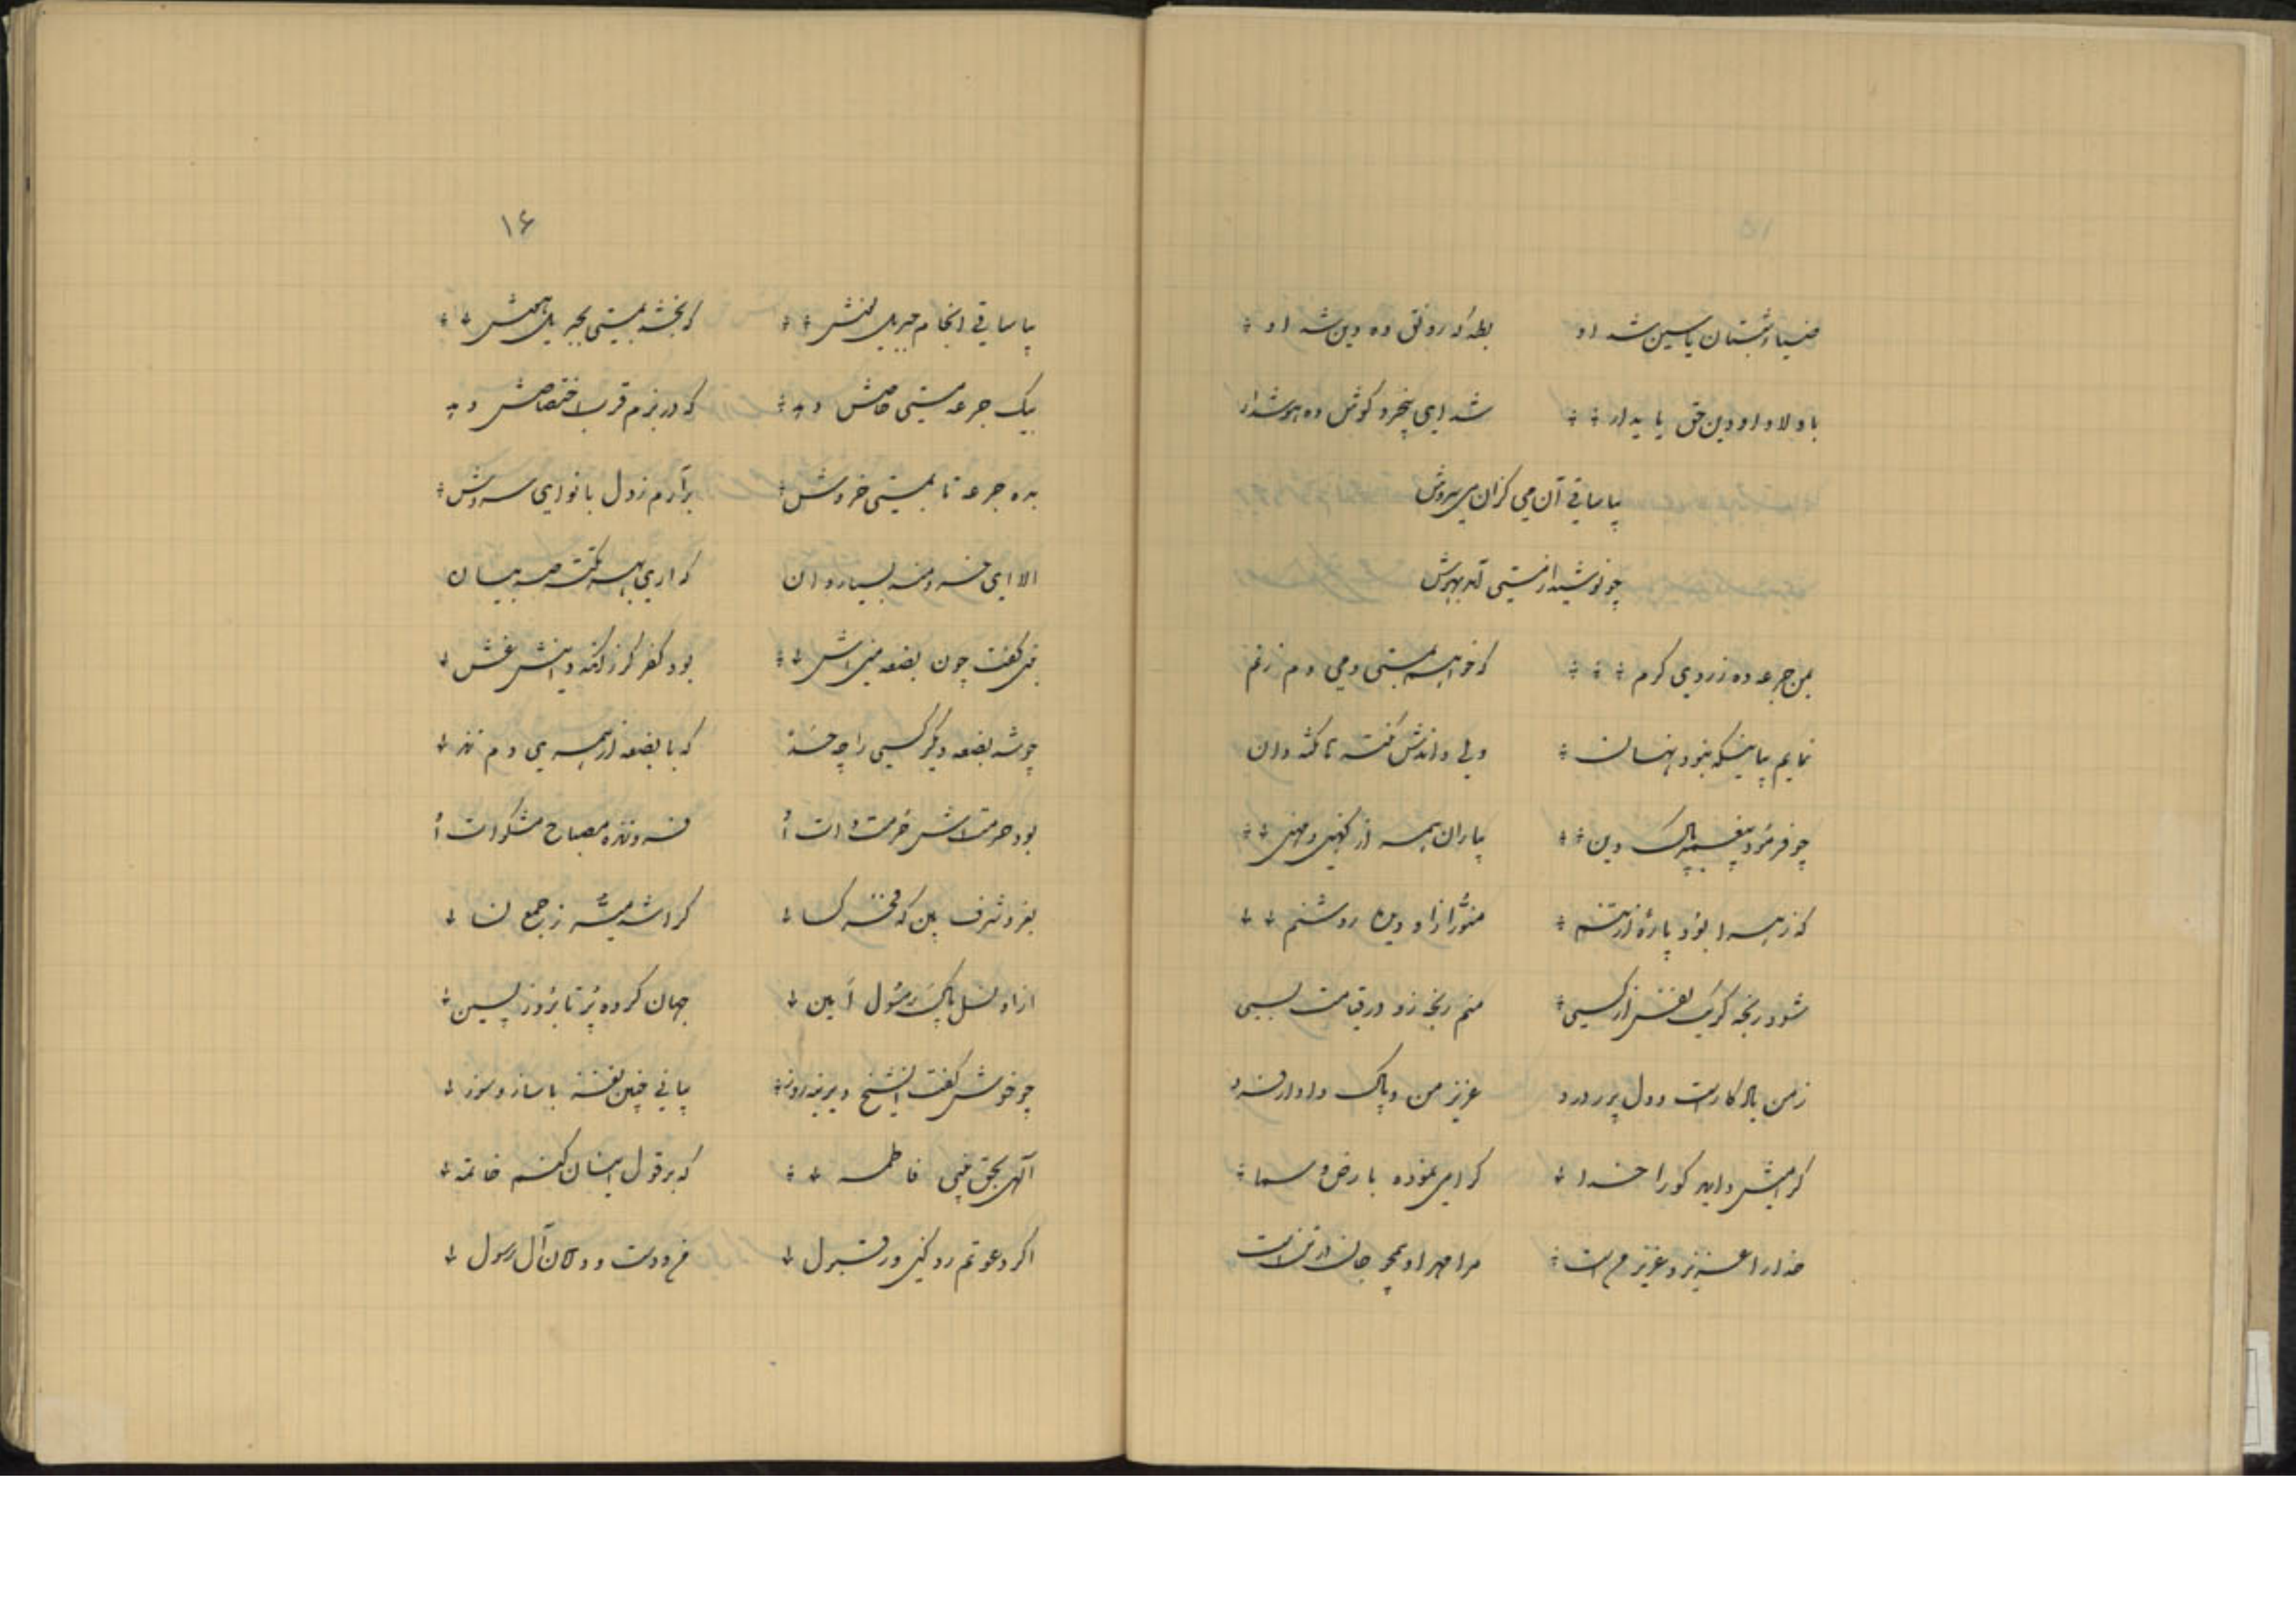 ۱۵
ضیاء شبستان یاسین شد او بطه او رونق ده دین شد او
باولاد او دین حق پایدار شد ای بیخرد گوش ده هوشدار
بیا ساقی آن می کزان می سروش
چو نوشید از مستی آمد بهوش
بمن جرعه ده ز روی کرم که خواهم بمستی دمی دم زنم
نمایم بیا نیکه نبود نهان ولی داندش نکته دان
چو فرمود پیغمبر پاک دین بیاران همه از کهین و مهین
که زهرا بود پارهٔ از تنم منور ازاو دیده روشنم
شود رنجه گر یک نفس از کسی منم رنجه زو در قیامت بسی
زمن یادگار است و دل پرورد عزیز من و پاک دادار فرد
گرامیش دارید کو را خدا گرامی نموده بارض و سما
خدا را عزیز و عزیز من است مرا مهر او همچو جان در تن است
۱۶
بیا ساقی از جام جبریل منش که بخشد بمستی بجبریل
بیک جرعه مستی خاصش دهد که در بزم قرب اختصاصش دهد
بده جرعه تا بمستی خروش برآرم ز دل با نوای سروش
الا ای خردمند بسیار دان که داری بهر نکته صد بیان
نبی گفت چون بضعه منی اش بود کفر گر ز
چو شد بضعه دیگر کسی را چه حد که با بضعه از همسری دم زند
بود حرمتش حرمت ذات او فروزنده مصباح مشکوات او
بفر و شرف بین که فخر کسا کرا شد میسر ز جمع نسا
ازاو نسل پاک رسول امین جهان کرده پر تا بروز پسین
چو خوش گفت آن شیخ دیرینه روز بیانی چنین نغز با ساز و سوز
الهی بحق بنی فاطمه که بر قول ایمان کنم خاتمه
اگر دعوتم رد کنی ور قبول من و دست و دامان آل رسول